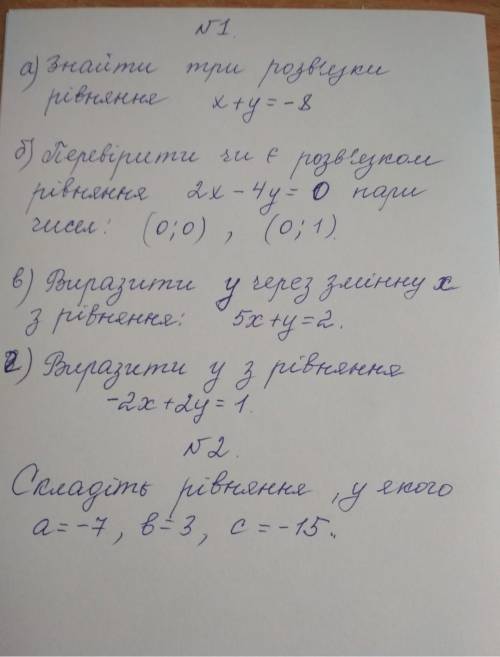 №1.
а) Знайти три розв'язки
рівняння x+y=-8
б) Перевірити чи є розв'язком
рівняння 2x-4y=0 пари
чисел: (0;0), (0;1).
в) Виразити y через змінну x
з рівняння: 5x+y=2.
г) Виразити y з рівняння
-2x+2y=1.
№2.
Складіть рівняння, у якого
a=-7, в=3, c=-15.